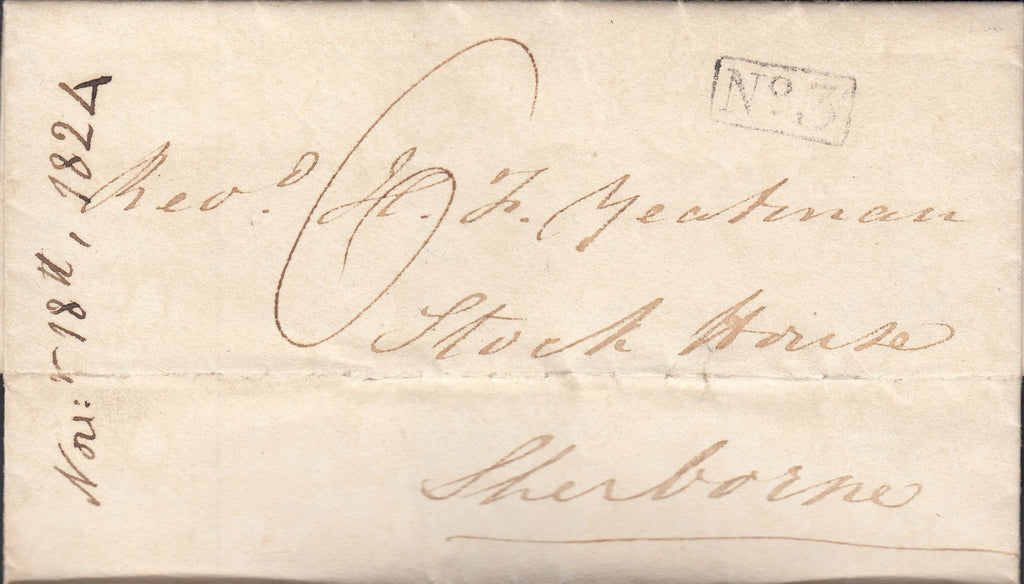 No. 3
6
Revd. H. F. Yeatman
Stock House
Sherborne
Novr: 18th, 1824